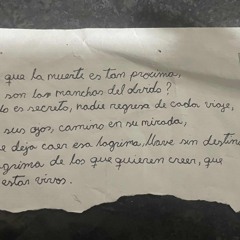 que la muerte es tan proxima,
son las manchas del dardo?
do es secreto, nadie regresa de cada viaje,
sus ojos, camino en su mirada,
e deja caer esa lagrima, llave sin destino
agrima de los que quieren creer, que
estar vivos.